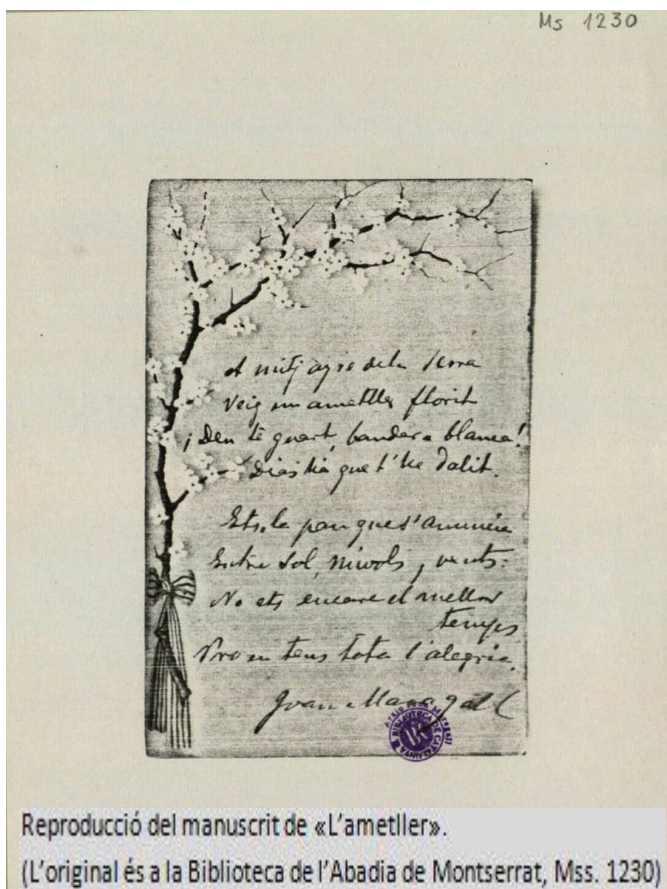 Ms 1230
A mitj ayre de la serra
Veig un ametller florit
¡Deu te guart, bandera blanca!
Dias ha que t'he dalit.
Ets la pau que s'anuncia
Entre sol, nivols y vents:
No ets encare el mellor
temps
Pro en tens tota l'alegria.
Joan Maragall
Reproducció del manuscrit de «L'ametller».
(L'original és a la Biblioteca de l'Abadia de Montserrat, Mss. 1230)